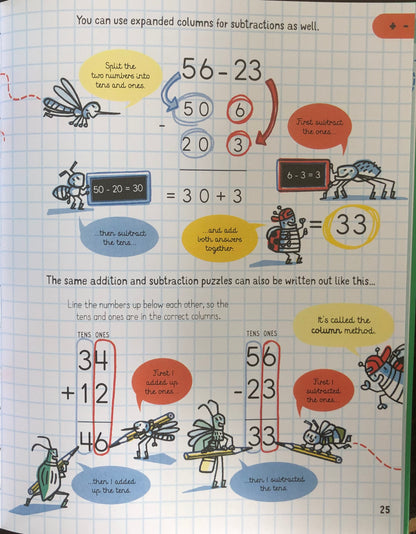 You can use expanded columns for subtractions as well.
+ -
Split the
two numbers into
tens and ones.
56 - 23
50 6
First subtract
the ones...
-
20 3
50 - 20 = 30
6 - 3 = 3
= 30 + 3
= 33
...then subtract
the tens...
...and add
both answers
together.
The same addition and subtraction puzzles can also be written out like this...
Line the numbers up below each other, so the
tens and ones are in the correct columns.
It's called the
column method.
TENS ONES
34
+ 12
46
First I
added up
the ones...
...then I added
up the tens.
TENS ONES
56
- 23
33
First I
subtracted
the ones...
...then I subtracted
the tens.
25